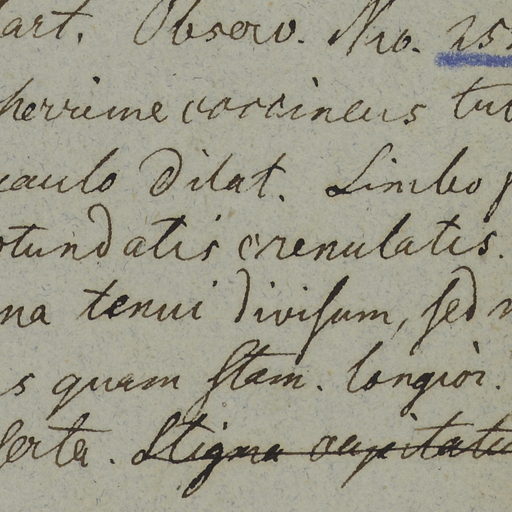 art. Observ. Nro. 25
herrime coccineus tu
caulo dilat. Limbo p
otundatis crenulatis.
na tenui divisum, sed n
s quam Stam. longior.
serta. Stigma capitatu